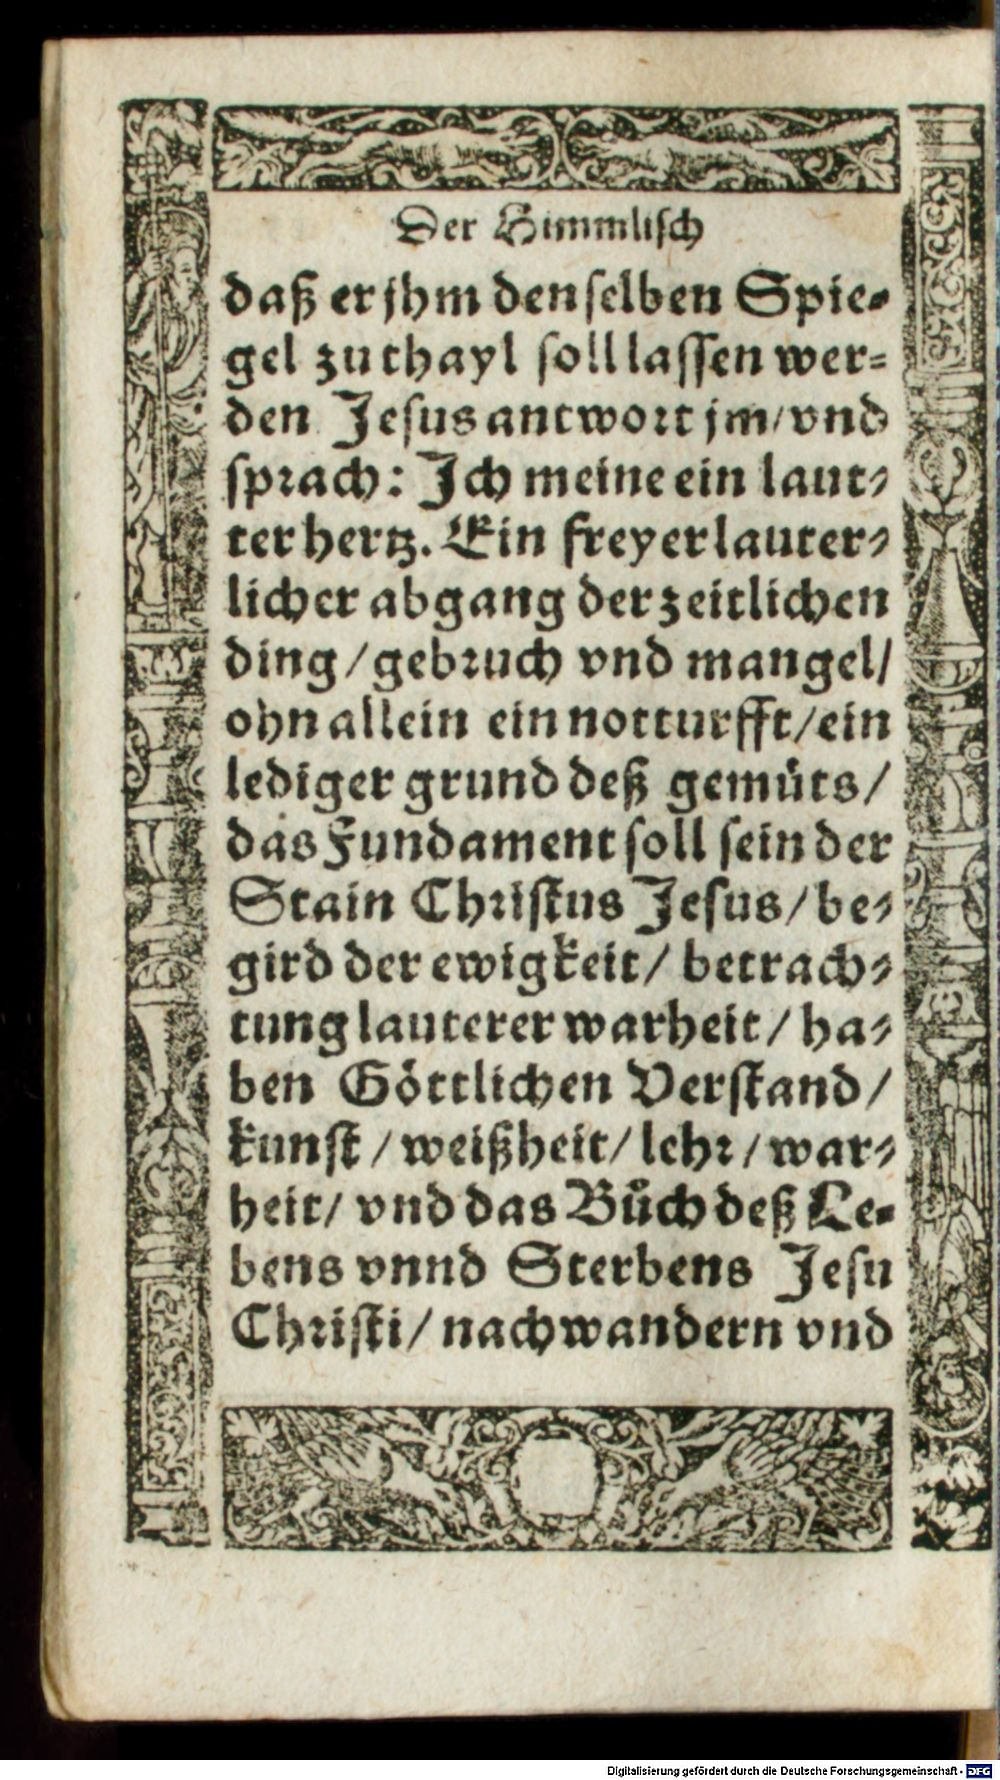 Der Himmlisch
daß er jhm denselben Spie-
gel zu thayl soll lassen wer-
den Jesus antwort jm/vnd
sprach: Ich meine ein laut-
ter hertz. Ein freyer lauter-
licher abgang der zeitlichen
ding/gebruch vnd mangel/
ohn allein ein notturfft/ein
lediger grund deß gemüts/
das Fundament soll sein der
Stain Christus Jesus/be-
gird der ewigkeit/ betrach-
tung lauterer warheit/ ha-
ben Göttlichen Verstand/
kunst/weißheit/lehr/war-
heit/ vnd das Bůch deß Le-
bens vnnd Sterbens Jesu
Christi/ nachwandern vnd
Digitalisierung gefördert durch die Deutsche Forschungsgemeinschaft - DFG